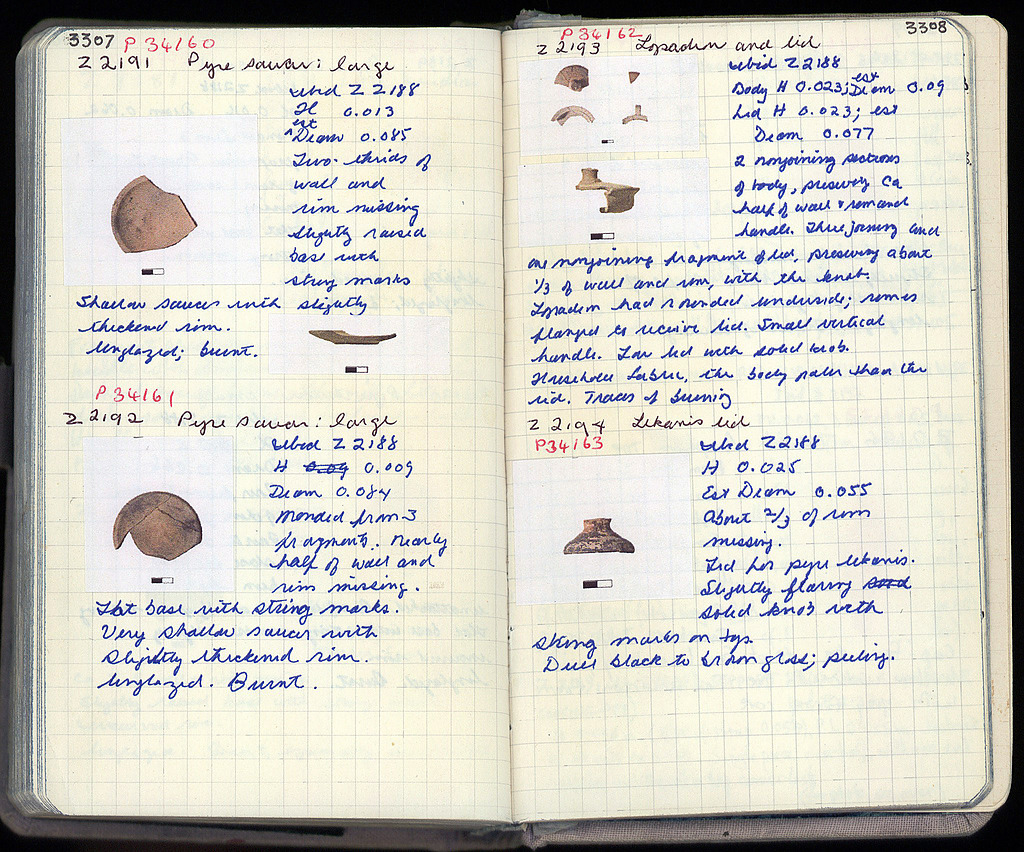 3307 P 34160
Z 2191 Pyre saucer: large
ubid Z 2188
H 0.013
est
^Diam 0.085
Two-thirds of
wall and
rim missing
Slightly raised
base with
string marks
Shallow saucer with slightly
thickened rim.
Unglazed; burnt.
P 34161
Z 2192 Pyre saucer: large
ubid Z 2188
H 0.09 0.009
Diam 0.084
Mended from 3
fragments. Nearly
half of wall and
rim missing.
Flat base with string marks.
Very shallow saucer with
slightly thickened rim.
Unglazed. Burnt.
3308
P 34162
Z 2193 Lopadion and lid
ubid Z 2188
Body H 0.023; est Diam 0.09
Lid H 0.023; est
Diam 0.077
2 nonjoining sections
of body, preserving Ca
half of wall + rim and
handle. Three joining and
one nonjoining fragment of lid, preserving about
1/3 of wall and rim, with the knob.
Lopadion had rounded underside; rim is
flanged to receive lid. Small vertical
handle. Low lid with solid knob.
Household fabric, the body paler than the
lid. Traces of burning
Z 2194 Lekanis lid
P34163
ubid Z 2188
H 0.025
Est Diam 0.055
About 2/3 of rim
missing.
Lid for pyre lekanis.
Slightly flaring
solid knob with
string marks on top.
Dull black to brown gloss; peeling.